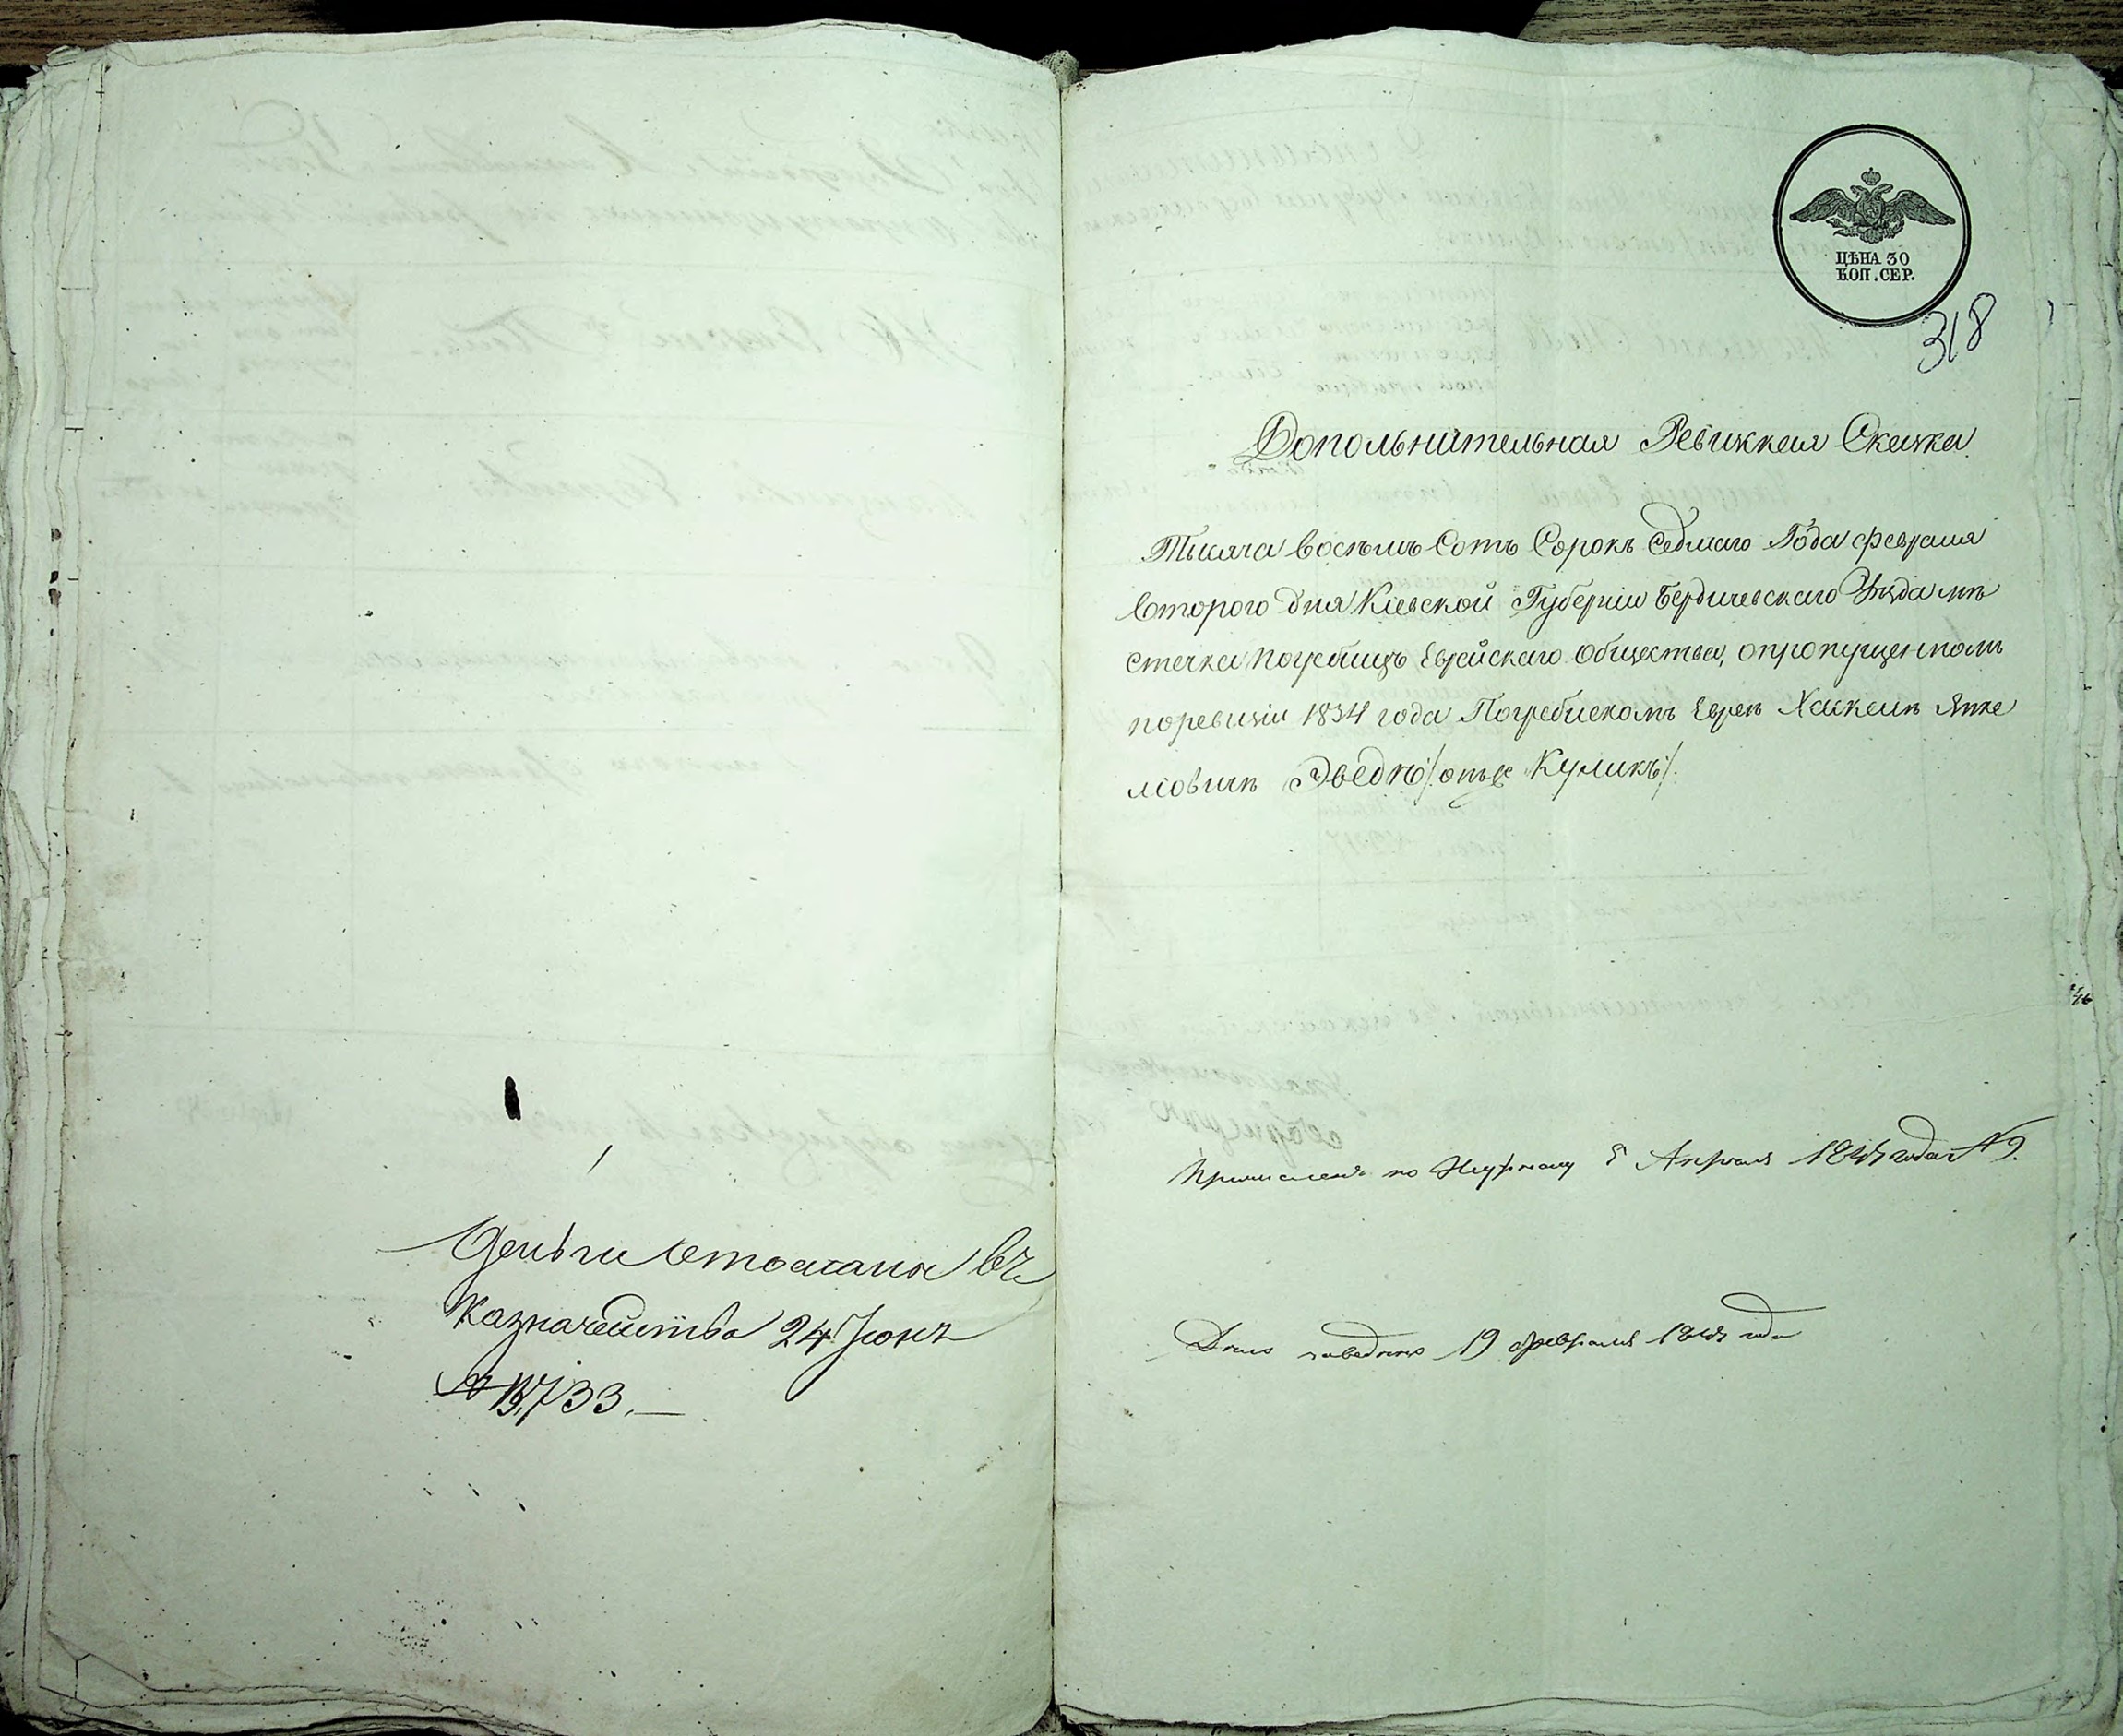 Деньги отосланы въ
Казначейства 24 Іюнъ
№ 13,733.
ЦѢНА 30
КОП. СЕР.
318
Дополнительная Ревижкая Скажка
Тысяча восѣмь Сотъ Сорокъ Седмаго Года февраля
второго дня Кіевской Губерніи Бердичевскаго Уѣзда мѣ
стечка Погребищъ Еврейскаго Общества, о пропущенномъ
по ревизіи 1834 года Погребискомъ Евреѣ Хаккелѣ Янке
лiовичѣ /: онъ же Куликъ:/.
Причисленъ по Журналу 5 Апреля 1847 года № 9.
Дело заведено 19 февраля 1847 года